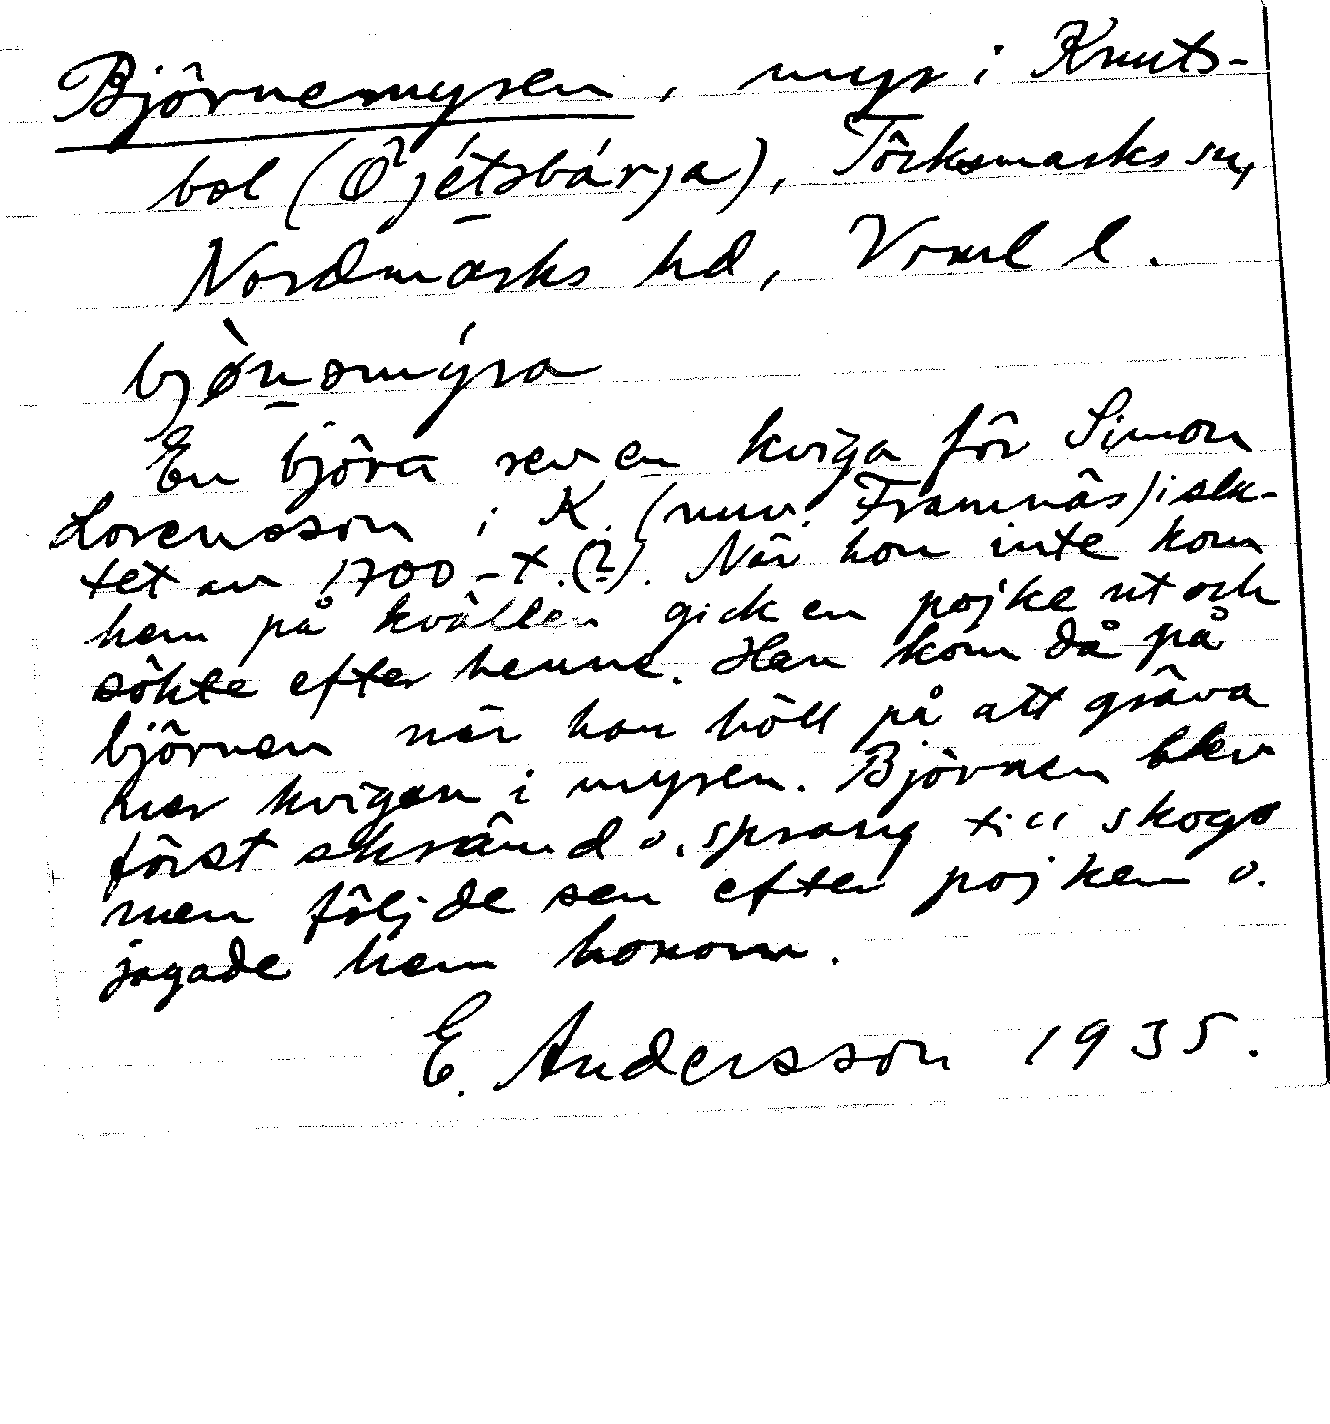 Björnemyren, myr i Knuts-
bol (Öjétsbárja), Töcksmarks sn,
Nordmarks hd, Vrml l.
bjònamýra
En björn rev en kviga för Simon
Lorensson i K. (nuv. Framnäs) i slu-
tet av 1700-t.(?). När hon inte kom
hem på kvällen gick en pojke ut och
sökte efter henne. Han kom då på
björnen när han höll på att gräva
ner kvigan i myren. Björnen blev
först skrämd o. sprang till skogs
men följde sen efter pojken o.
jagade hem honom.
E. Andersson 1935.